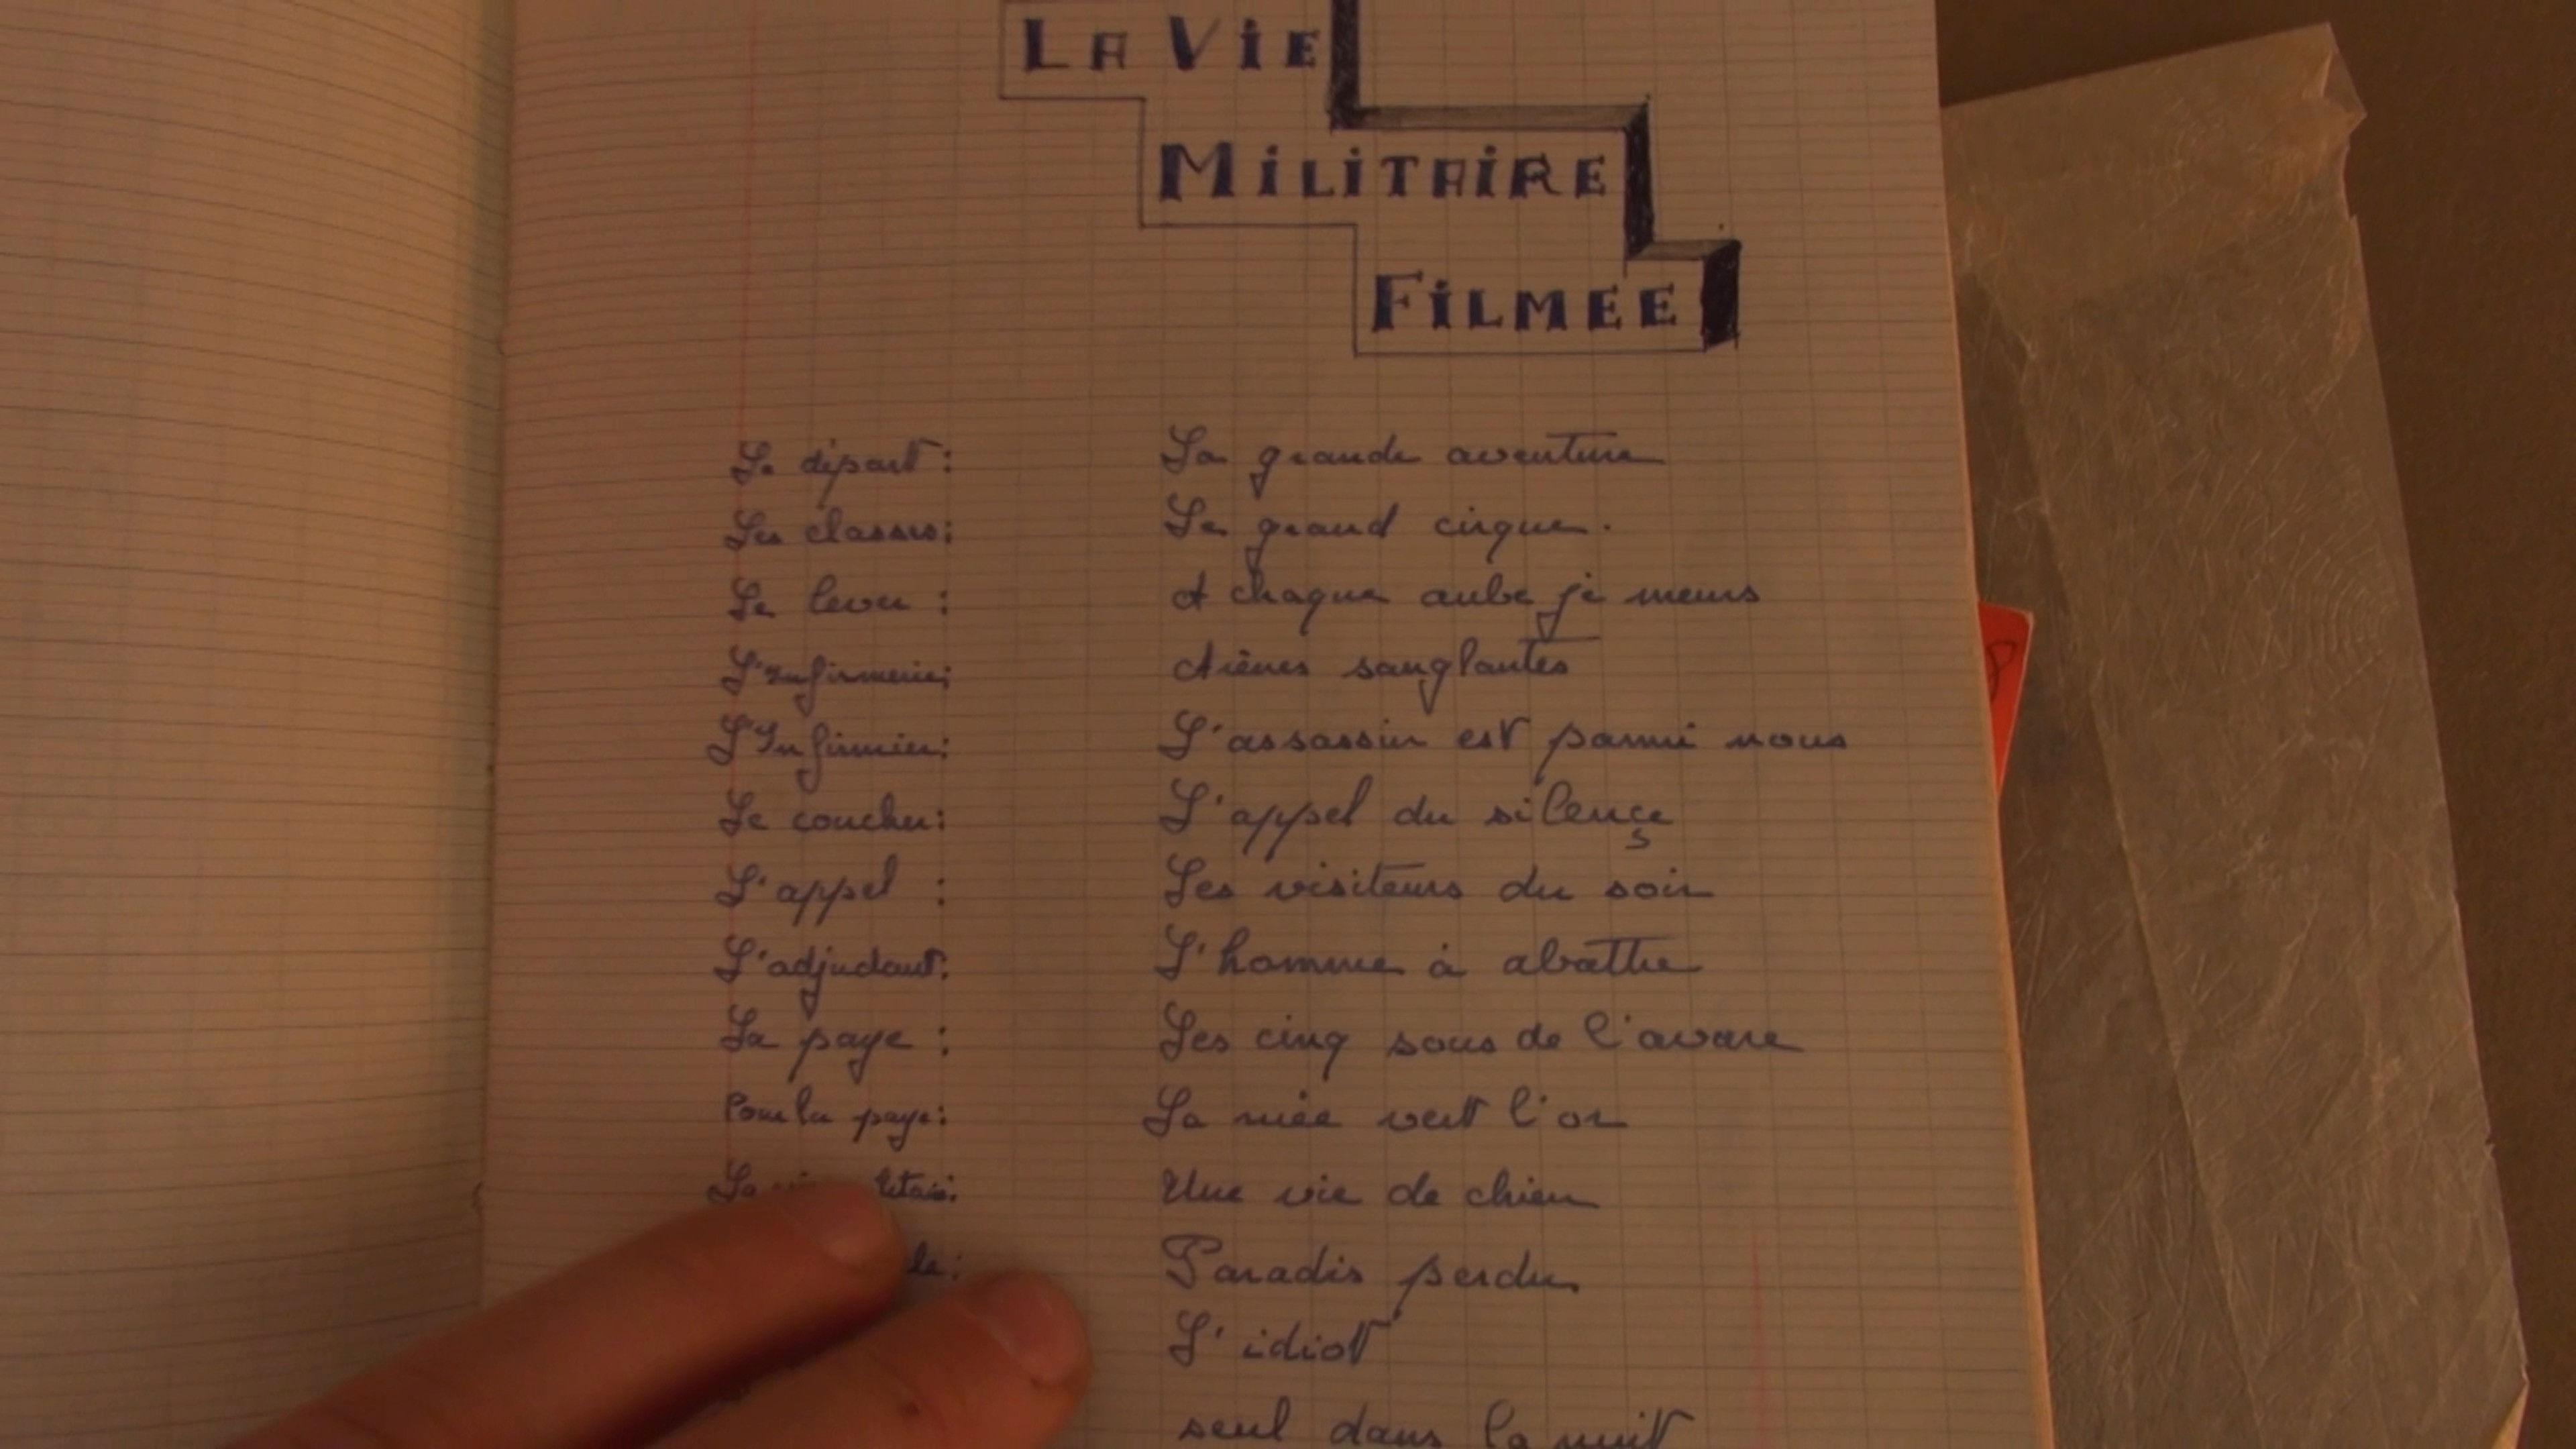 LA VIE
MILITAIRE
FILMEE
Le départ : La grande aventure
Les classes : Le grand cirque.
Le lever : A chaque aube je meurs
L'Infirmerie : Arènes sanglantes
L'Infirmier : L'assassin est parmi nous
Le coucher : L'appel du silence
L'appel : Les visiteurs du soir
L'adjudant : L'homme à abattre
La paye : Les cinq sous de l'avare
Pour la paye : La ruée vert l'or
La Une vie de chien
Paradis perdu
L'idiot
seul dans la nuit